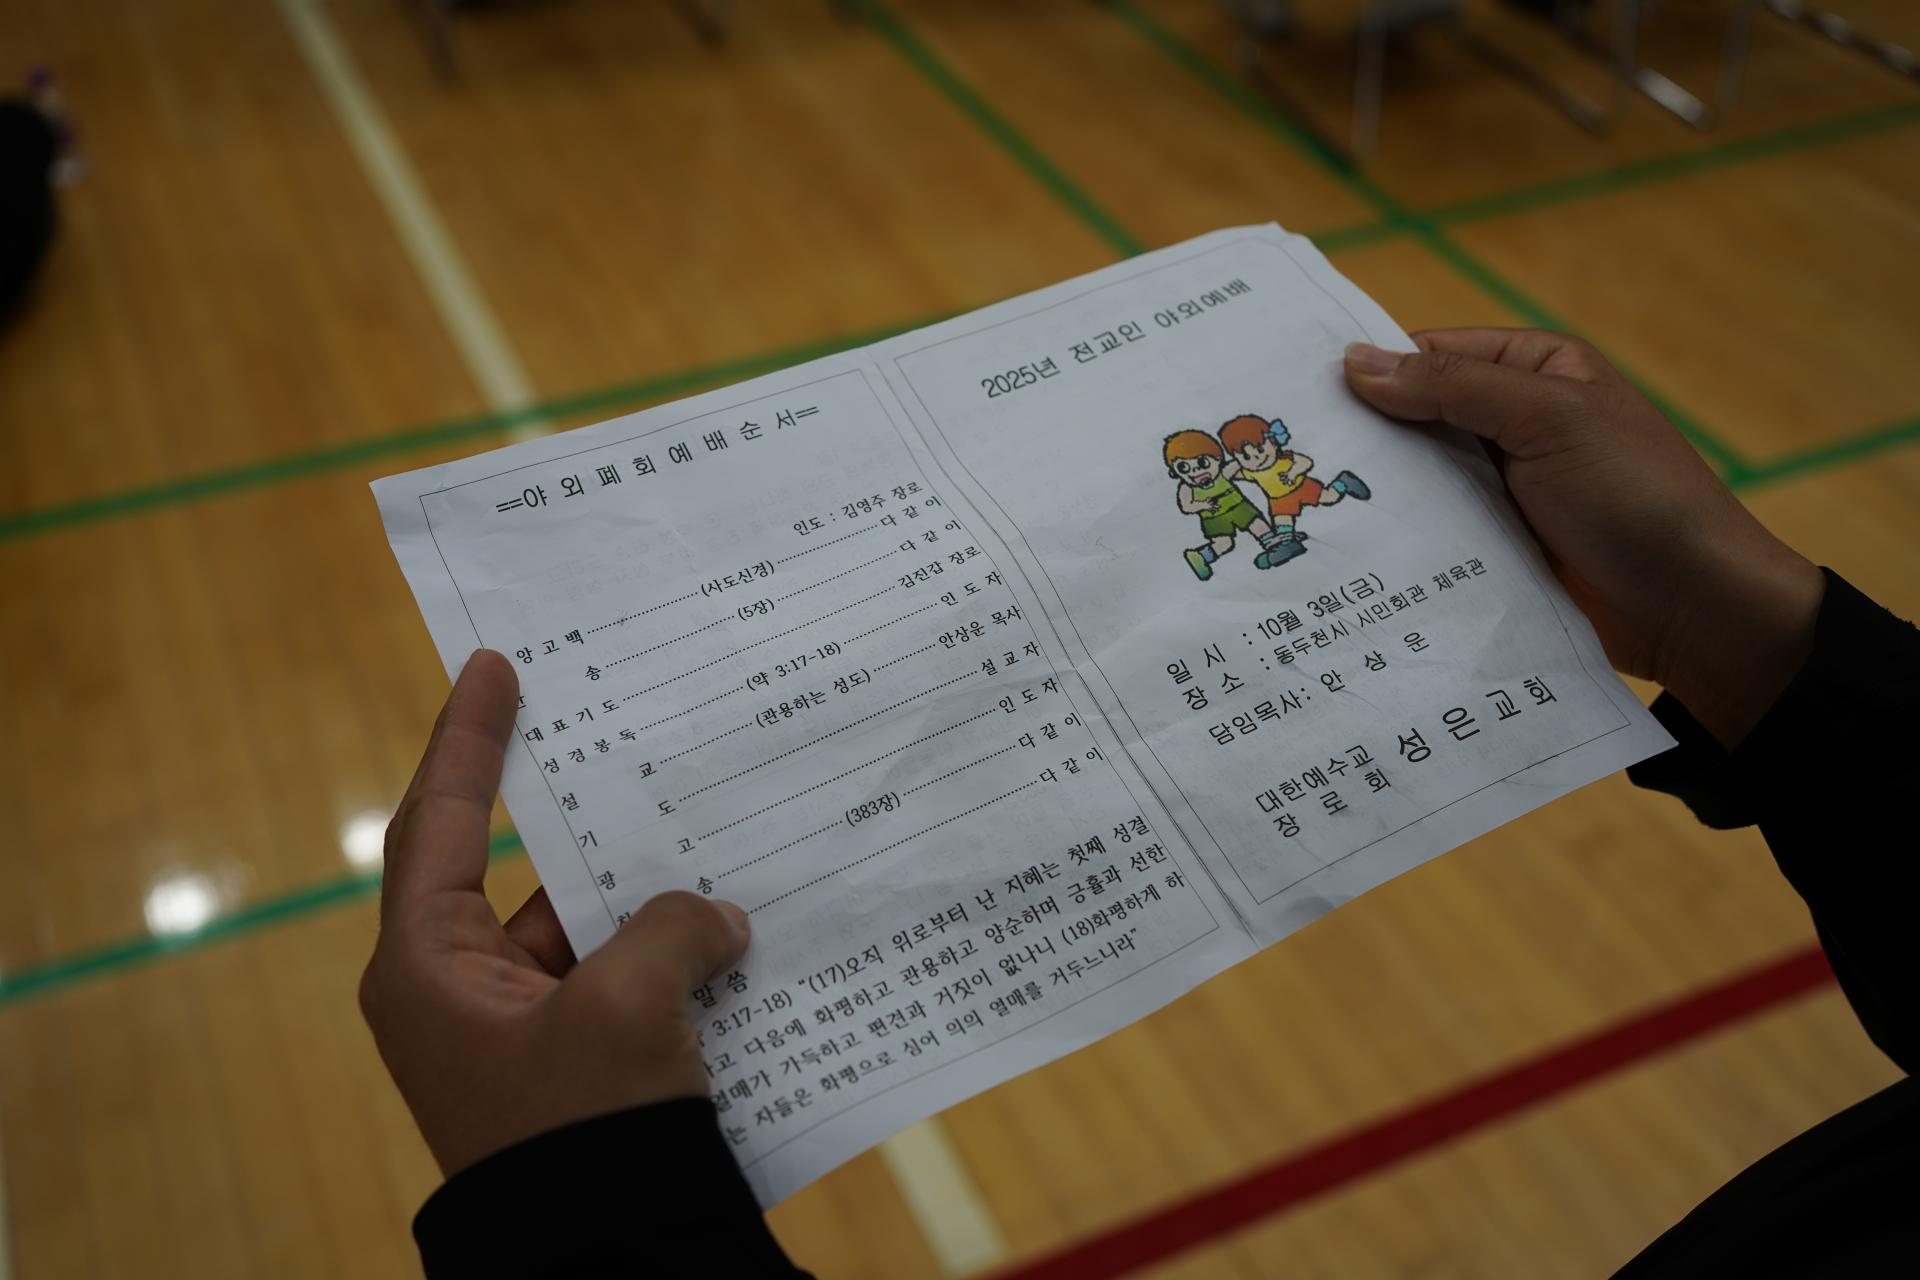 ==야 외 폐 회 예 배 순 서==
인도 : 김영주 장로
앙 고 백 (사도신경) 다 같 이
송 (5장) 다 같 이
대 표 기 도 김진갑 장로
성 경 봉 독 (약 3:17-18) 인 도 자
설 교 (관용하는 성도) 안상운 목사
기 도 설 교 자
광 고 인 도 자
송 (383장) 다 같 이
다 같 이
말 씀
3:17-18) “(17)오직 위로부터 난 지혜는 첫째 성결
하고 다음에 화평하고 관용하고 양순하며 긍휼과 선한
열매가 가득하고 편견과 거짓이 없나니 (18)화평하게 하
는 자들은 화평으로 심어 의의 열매를 거두느니라”
2025년 전교인 야외예배
일 시 : 10월 3일(금)
장 소 : 동두천시 시민회관 체육관
담임목사: 안 상 운
대한예수교
장 로 회 성 은 교 회